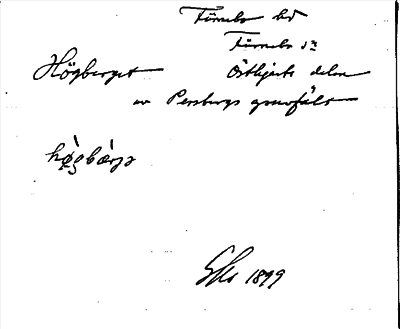 Färnebo hd
Färnebo sn
Högberget Östligaste delen
av Persbergs gruvfält
hø̀gbær̀jə
1899